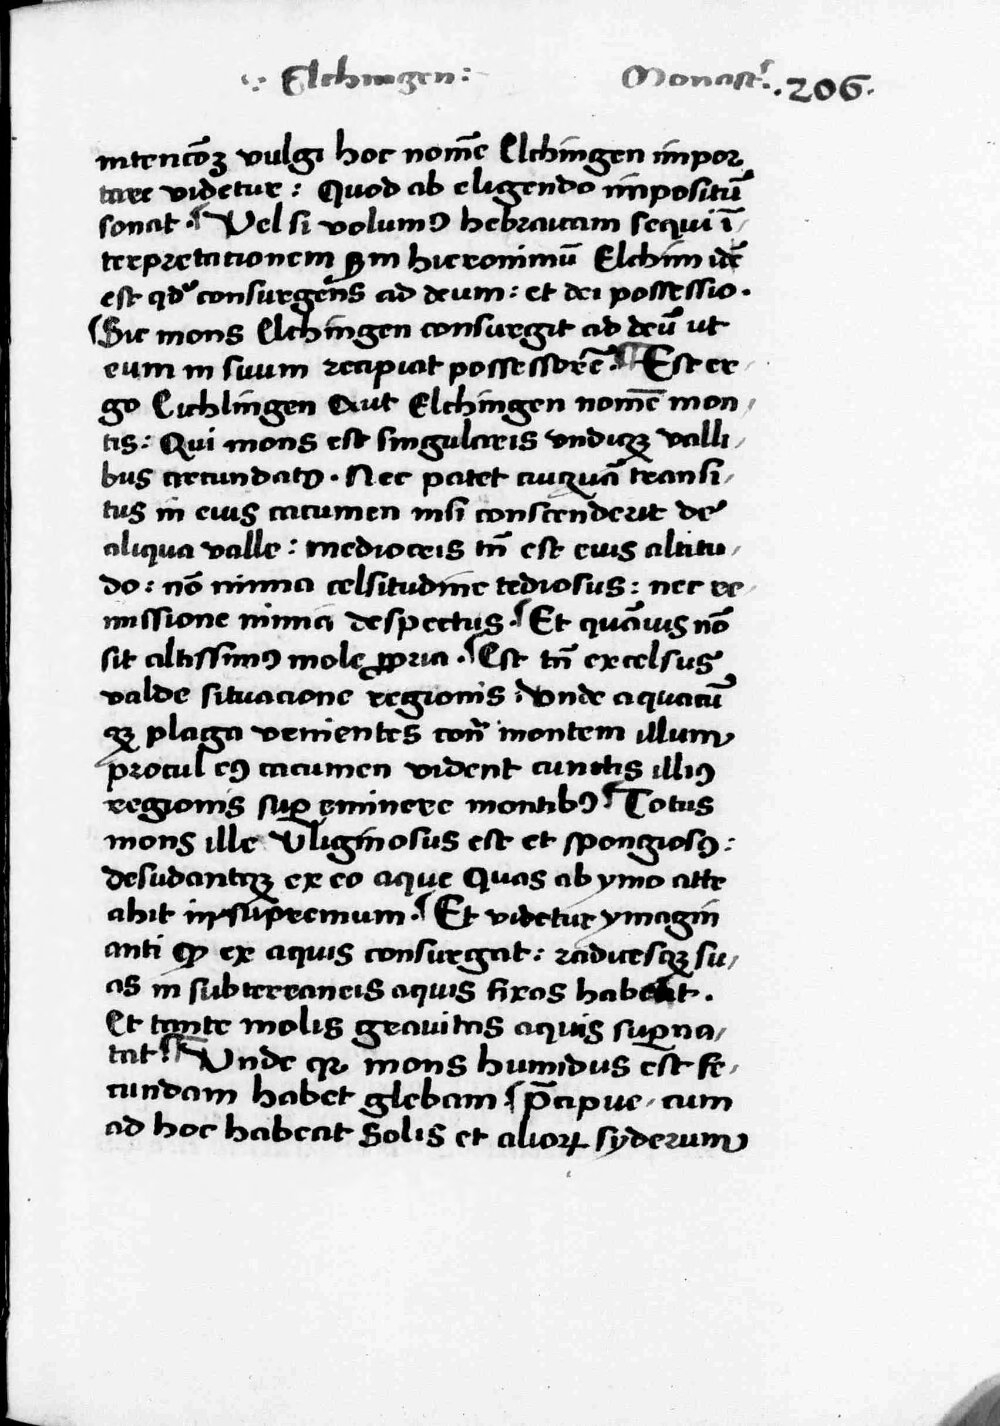 ·:· Elchingen: Monastr̄. .206.
intencōꝫ vulgi hoc nom̄e Elchingen impor
tare videtur: Quod ab eligendo impositū
sonat. Vel si volumꝰ hebraicam sequi ī-
terpretacionem ẞm hieronimū Elchim idē
est qd' consurgens ad deum: et dei possessio.
Sic mons Elchingen consurgit ad deū ut
eum in suum recipiat possessorē. Est er-
go Eichlingen aut Elchingen nomē mon-
tis: Qui mons est singularis vndiqꝫ valli-
bus circundatꝰ. Nec patet cuiquā transi-
tus in eius cacumen nisi conscenderit de
aliqua valle: mediocris tn̄ est eius altitu-
do: nō nimia celsitudine tediosus: nec re-
missione nimia despectus. Et quāuis nō
sit altissimꝰ mole ꝓpria. Est tn̄ excelsus
valde situacione regionis: Vnde a quacū
qꝫ plaga venientes contͣ montem illum
procul eꝰ cacumen vident cunctis illiꝰ
regionis suꝑ eminere montibꝰ. Totus
mons ille vliginosus est et spongiosꝰ:
desudantqꝫ ex eo aque Quas ab ymo attr
ahit in supremum. Et videtur ymagin
anti ꝙ ex aquis consurgat: radicesqꝫ su-
as in subterraneis aquis fixas habeat.
Et tante molis grauitas aquis suꝑna-
tat. Vnde qꝛ mons humidus est fe-
cundam habet glebam. p̄cipue cum
ad hoc habeat Solis et alioꝝ syderum